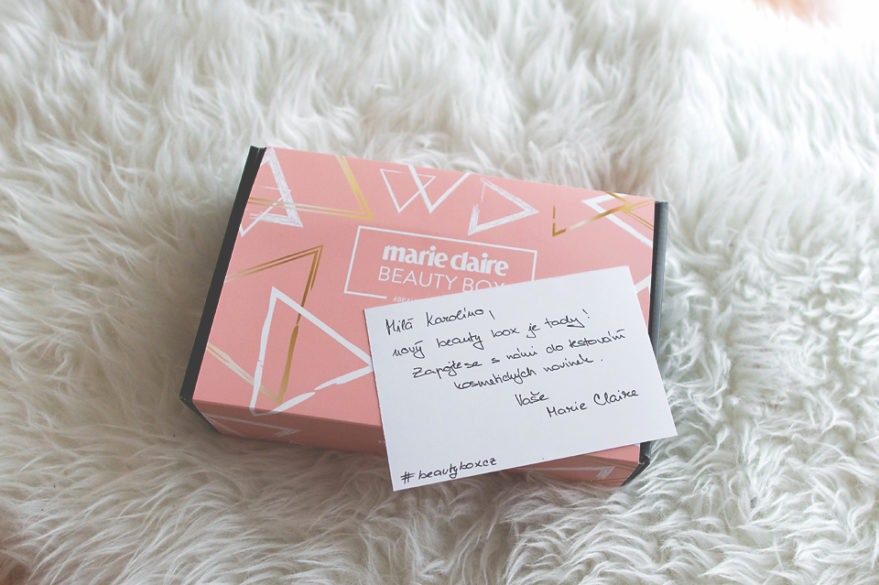 marie claire
BEAUTY BOX
Milá Karolíno,
nový beauty box je tady!
Zapojte se s námi do testování
kosmetických novinek.
Vaše
Marie Claire
#beautyboxcz